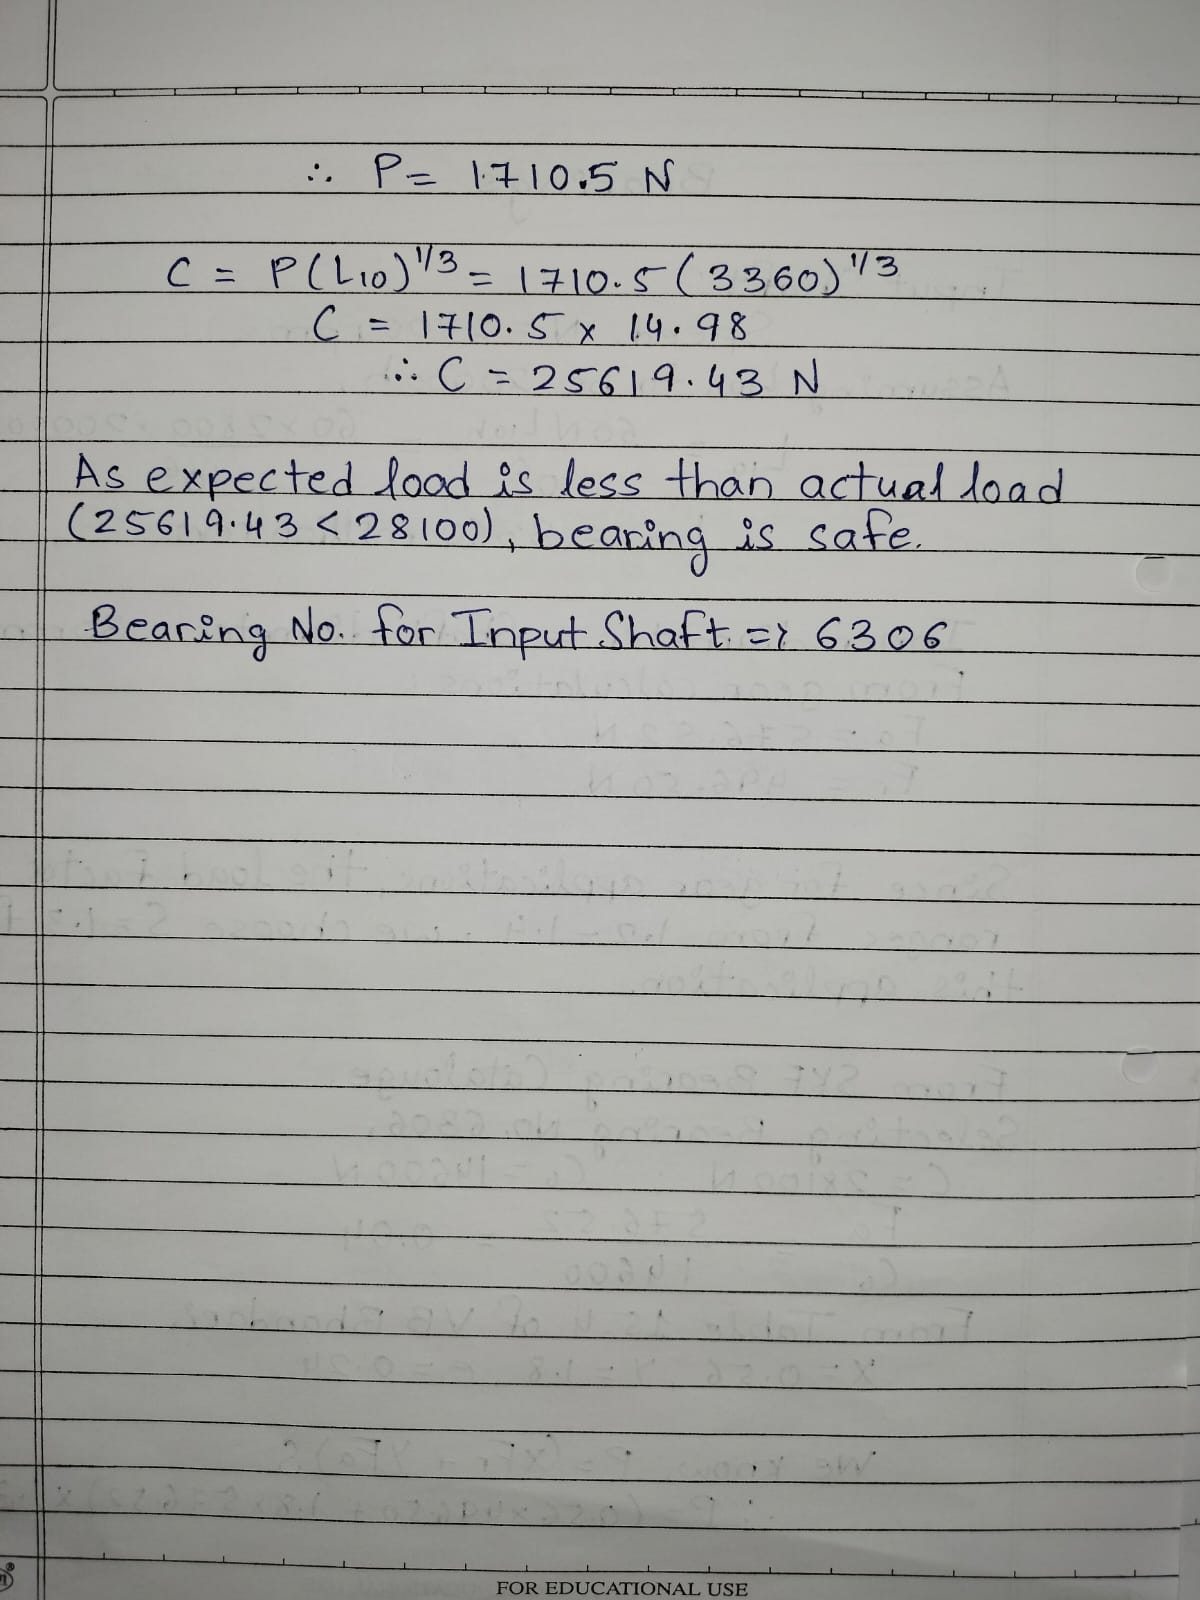 ∴ P = 1710.5 N
C = P(L10)^1/3 = 1710.5 (3360)^1/3
C = 1710.5 x 14.98
∴ C = 25619.43 N
As expected load is less than actual load
(25619.43 < 28100), bearing is safe.
Bearing No. for Input Shaft => 6306
FOR EDUCATIONAL USE